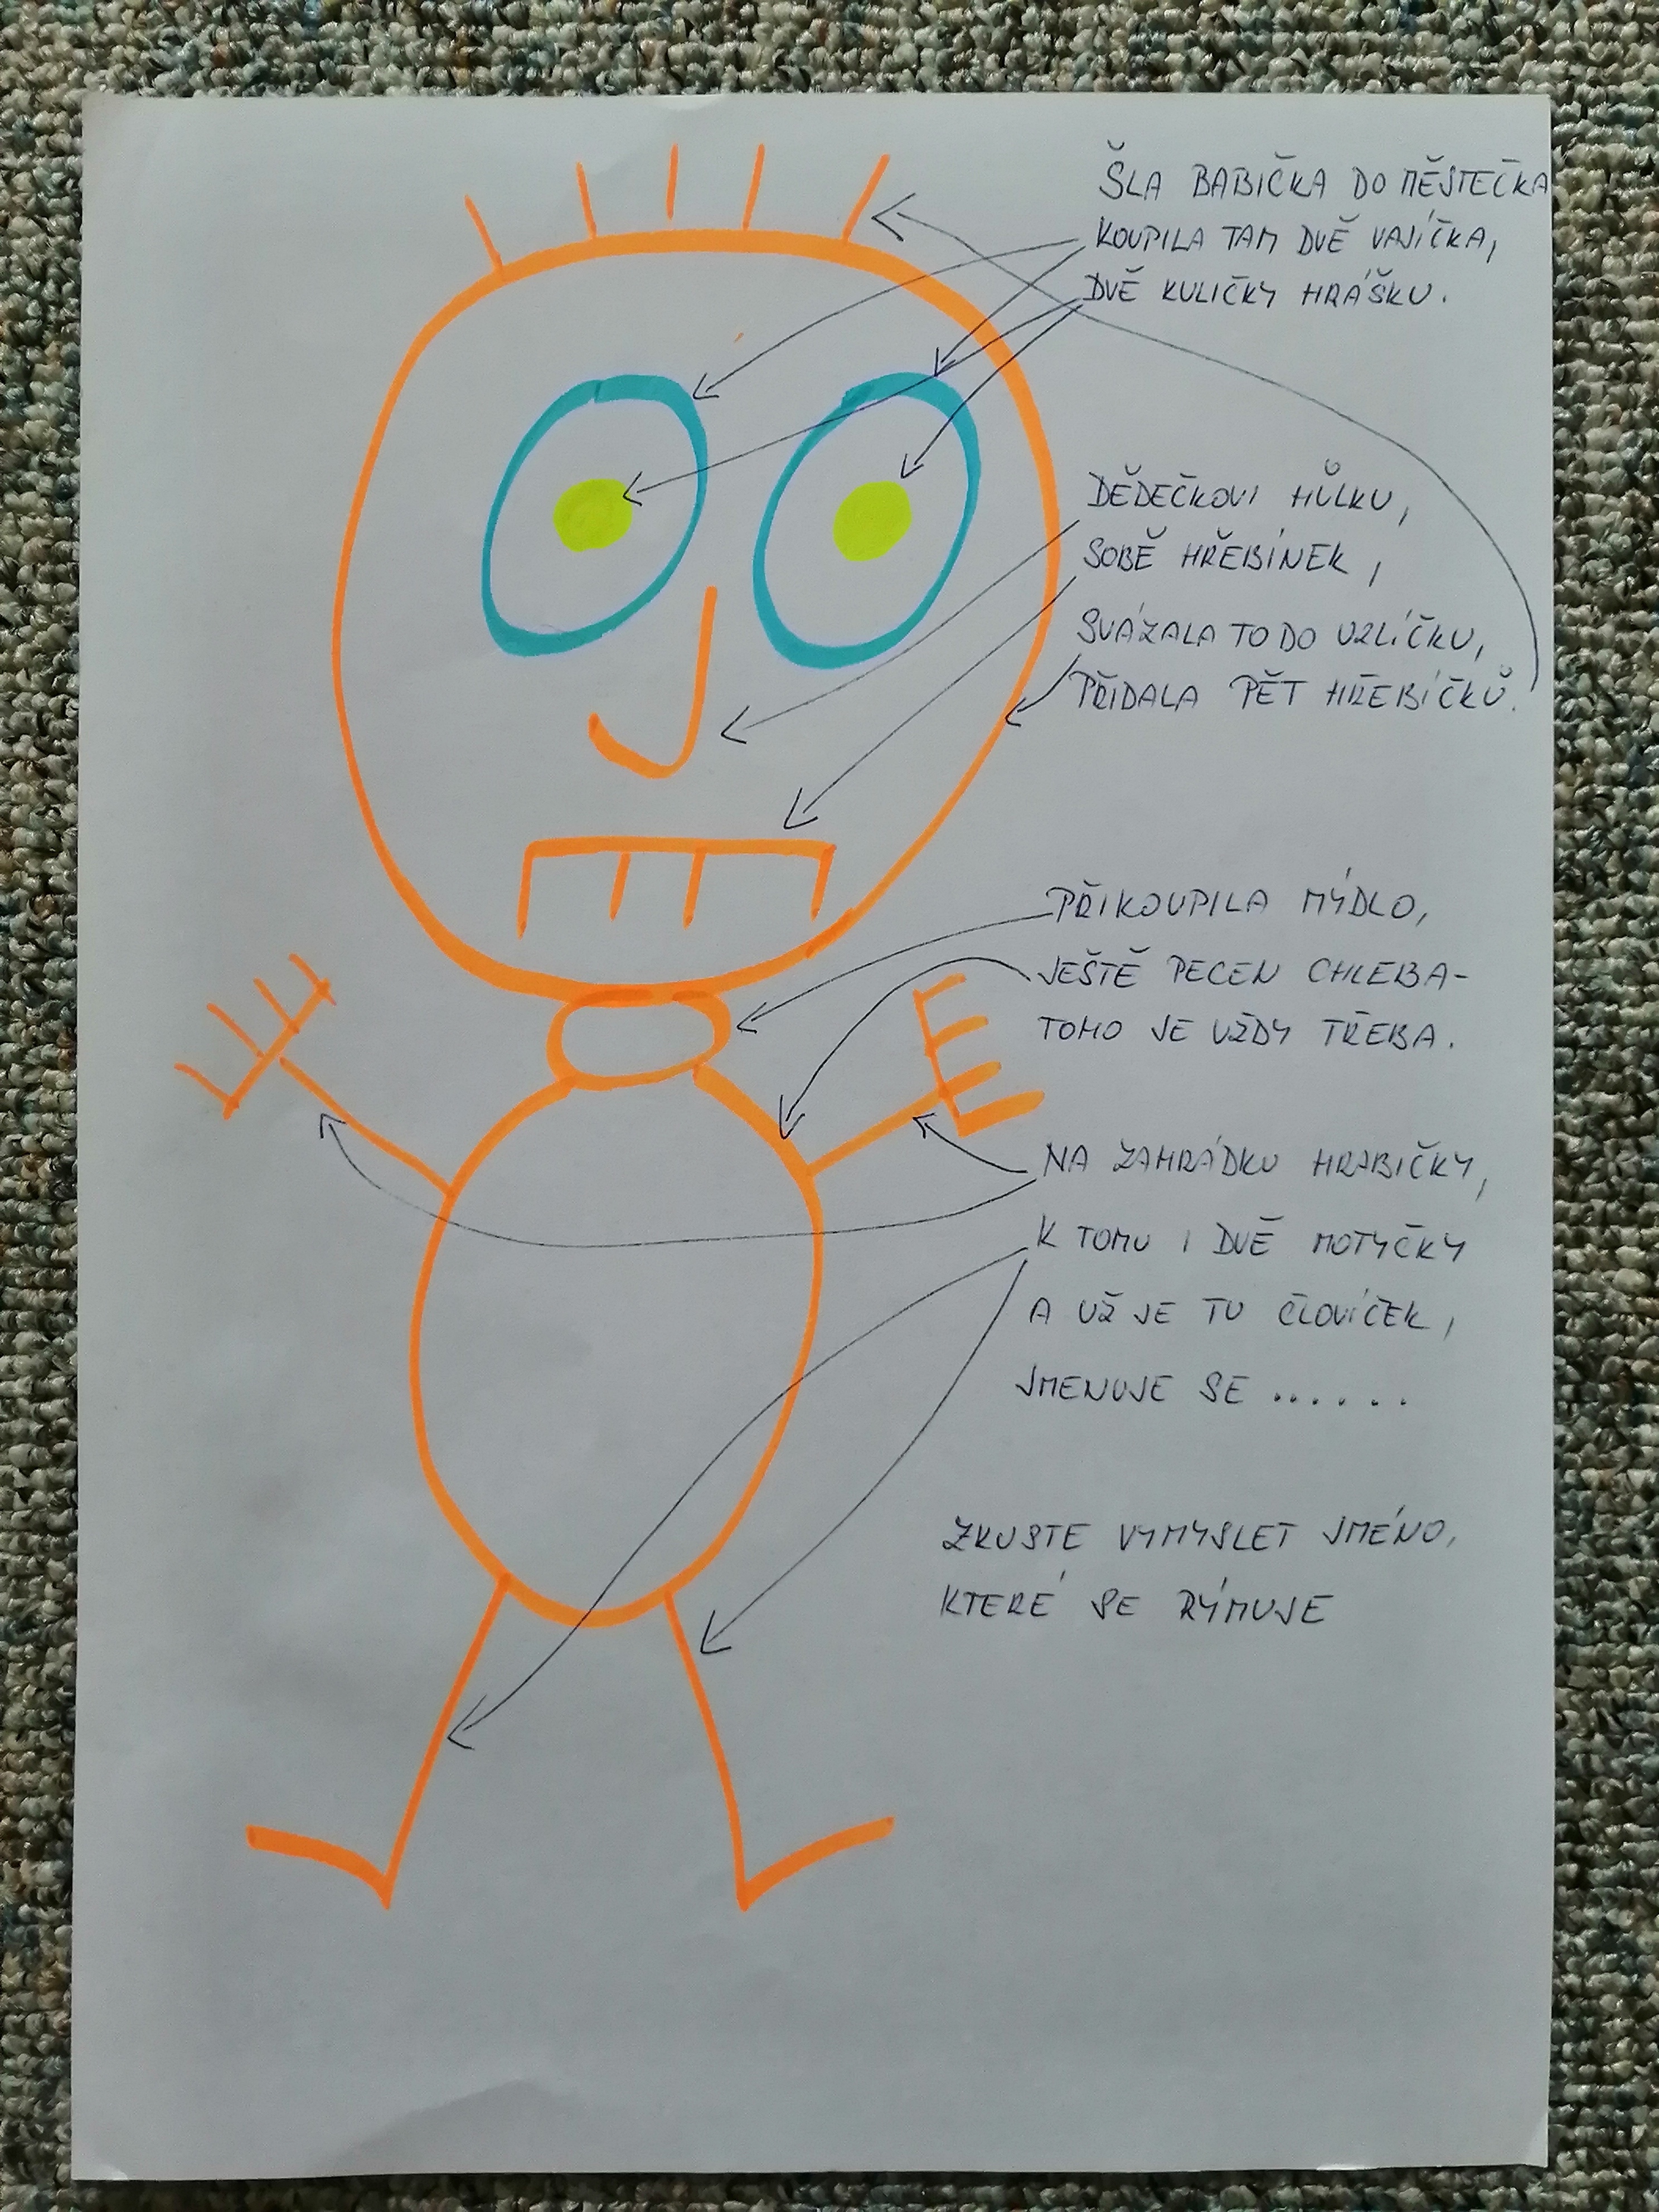 ŠLA BABIČKA DO MĚSTEČKA
KOUPILA TAM DVĚ VAJÍČKA,
DVĚ KULIČKY HRÁŠKU.
DĚDEČKOVI HŮLKU,
SOBĚ HŘEBÍNEK,
SVÁZALA TO DO UZLÍČKU,
PŘIDALA PĚT HŘEBÍČKŮ.
PŘIKOUPILA MÝDLO,
JEŠTĚ PECEN CHLEBA-
TOHO JE VŽDY TŘEBA.
NA ZAHRÁDKU HRABIČKY,
K TOMU I DVĚ MOTYČKY
A UŽ JE TU ČLOVÍČEK,
JMENUJE SE ......
ZKUSTE VYMYSLET JMÉNO,
KTERÉ SE RÝMUJE